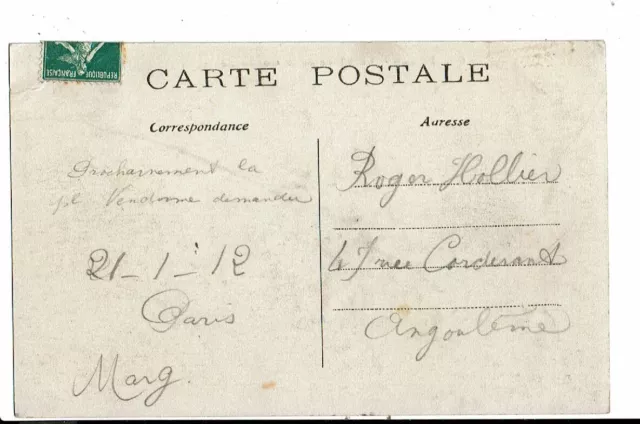 RÉPUBLIQUE FRANÇAISE
CARTE POSTALE
Correspondance
Adresse
Prochainement la
pl Vendôme demandée
21-1-12
Paris
Marg.
Roger Hollier
47 rue Corderant
Angoulême